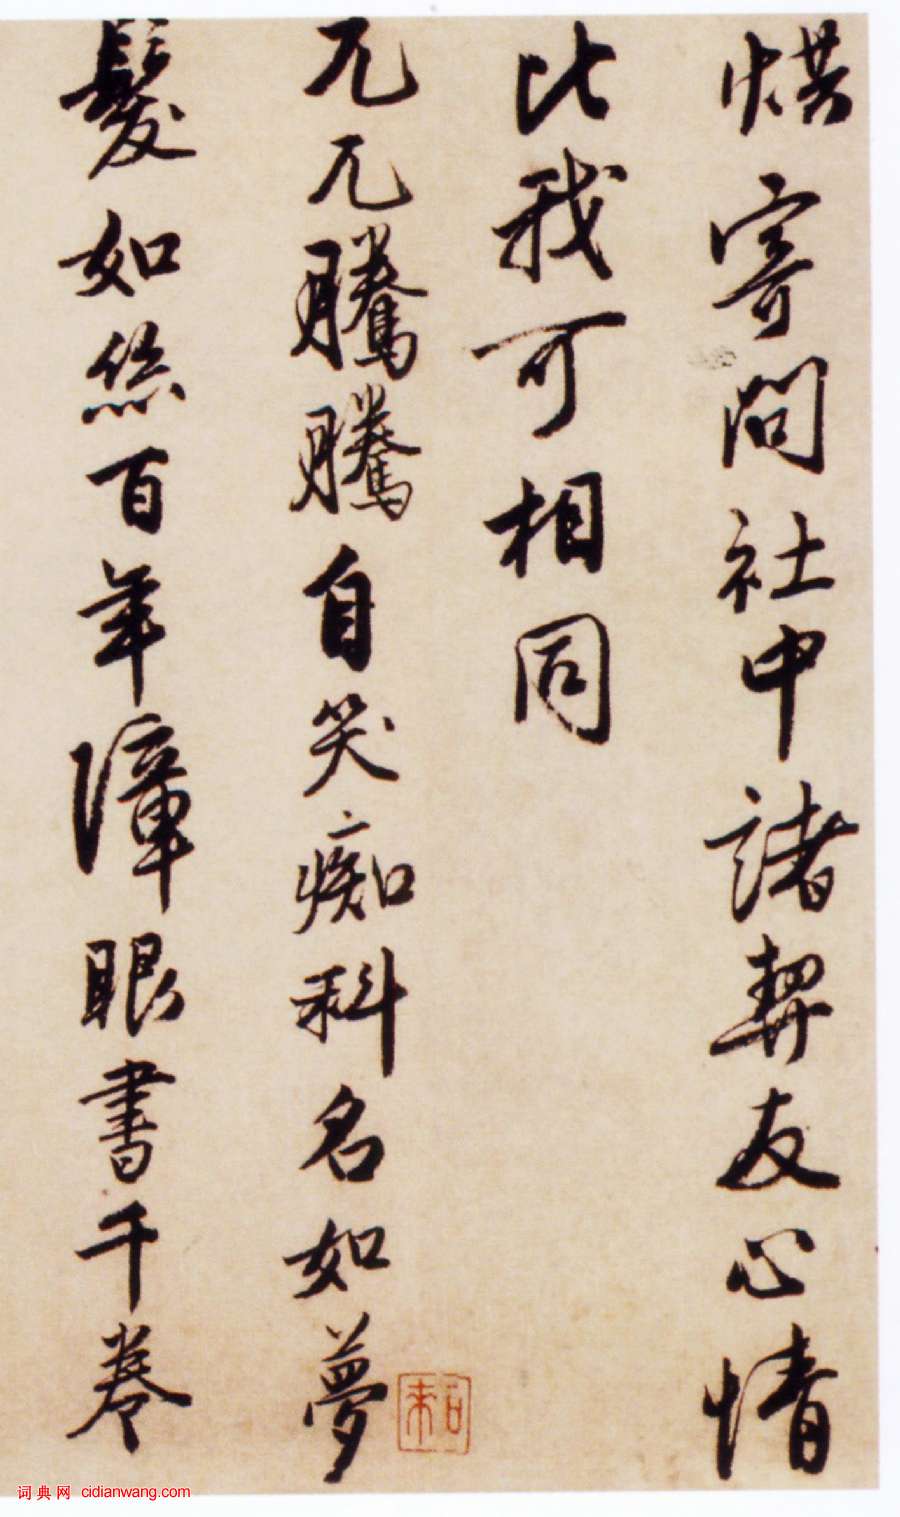 烘寄問社中諸契友心情
比我可相同
兀兀騰騰自笑痴科名如夢
髮如絲百年障眼書千卷
词典网 cidianwang.com